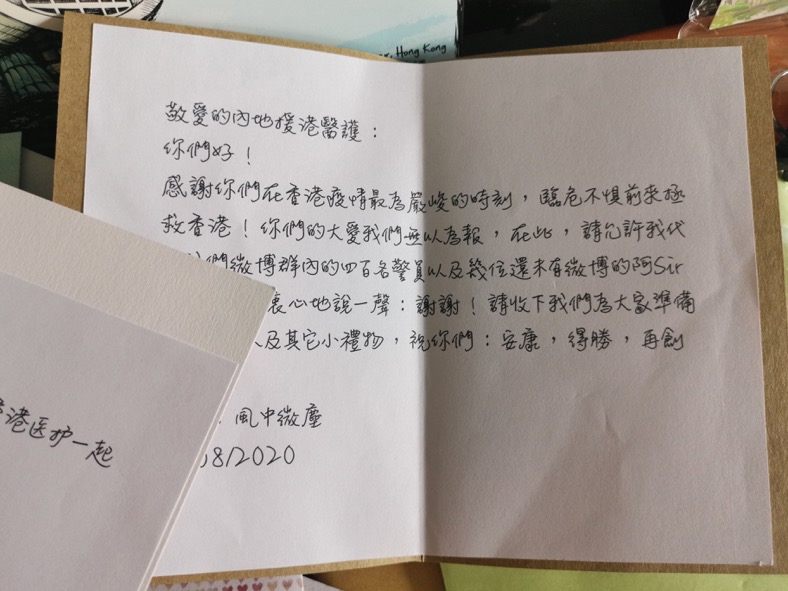 Hong Kong
敬愛的內地援港醫護：
你們好！
感謝你們在香港疫情最為嚴峻的時刻，臨危不惧前來拯
救香港！你們的大愛我們無以為報，在此，請允許我代
們微博群內的四百名警員以及幾位還未有微博的阿Sir
衷心地說一聲：謝謝！請收下我們為大家準備
及其它小禮物，祝你們：安康，得勝，再創
風中微塵
8/2020
港医护一起